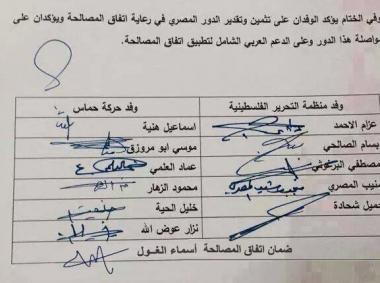 وفي الختام يؤكد الوفدان على تثمين وتقدير الدور المصري في رعاية اتفاق المصالحة ويؤكدان على
مواصلة هذا الدور وعلى الدعم العربي الشامل لتطبيق اتفاق المصالحة.
وفد منظمة التحرير الفلسطينية وفد حركة حماس
عزام الاحمد اسماعيل هنية
بسام الصالحي موسى ابو مرزوق
مصطفي البرغوثي عماد العلمي
منيب المصري محمود الزهار
جميل شحادة خليل الحية
نزار عوض الله
ضمان اتفاق المصالحة أسماء الغول